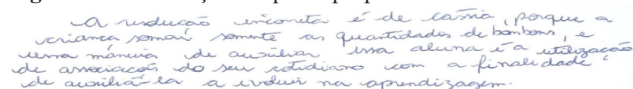 A resolução incorreta é de cassia, porque a
crianca somai somente as quantidades de bombons, e
uma máneira de auxiliar essa aluna é a utilização
de associações do seu cotidiano com a finalidade
de auxiliá-la a evoluir na aprendizagem.